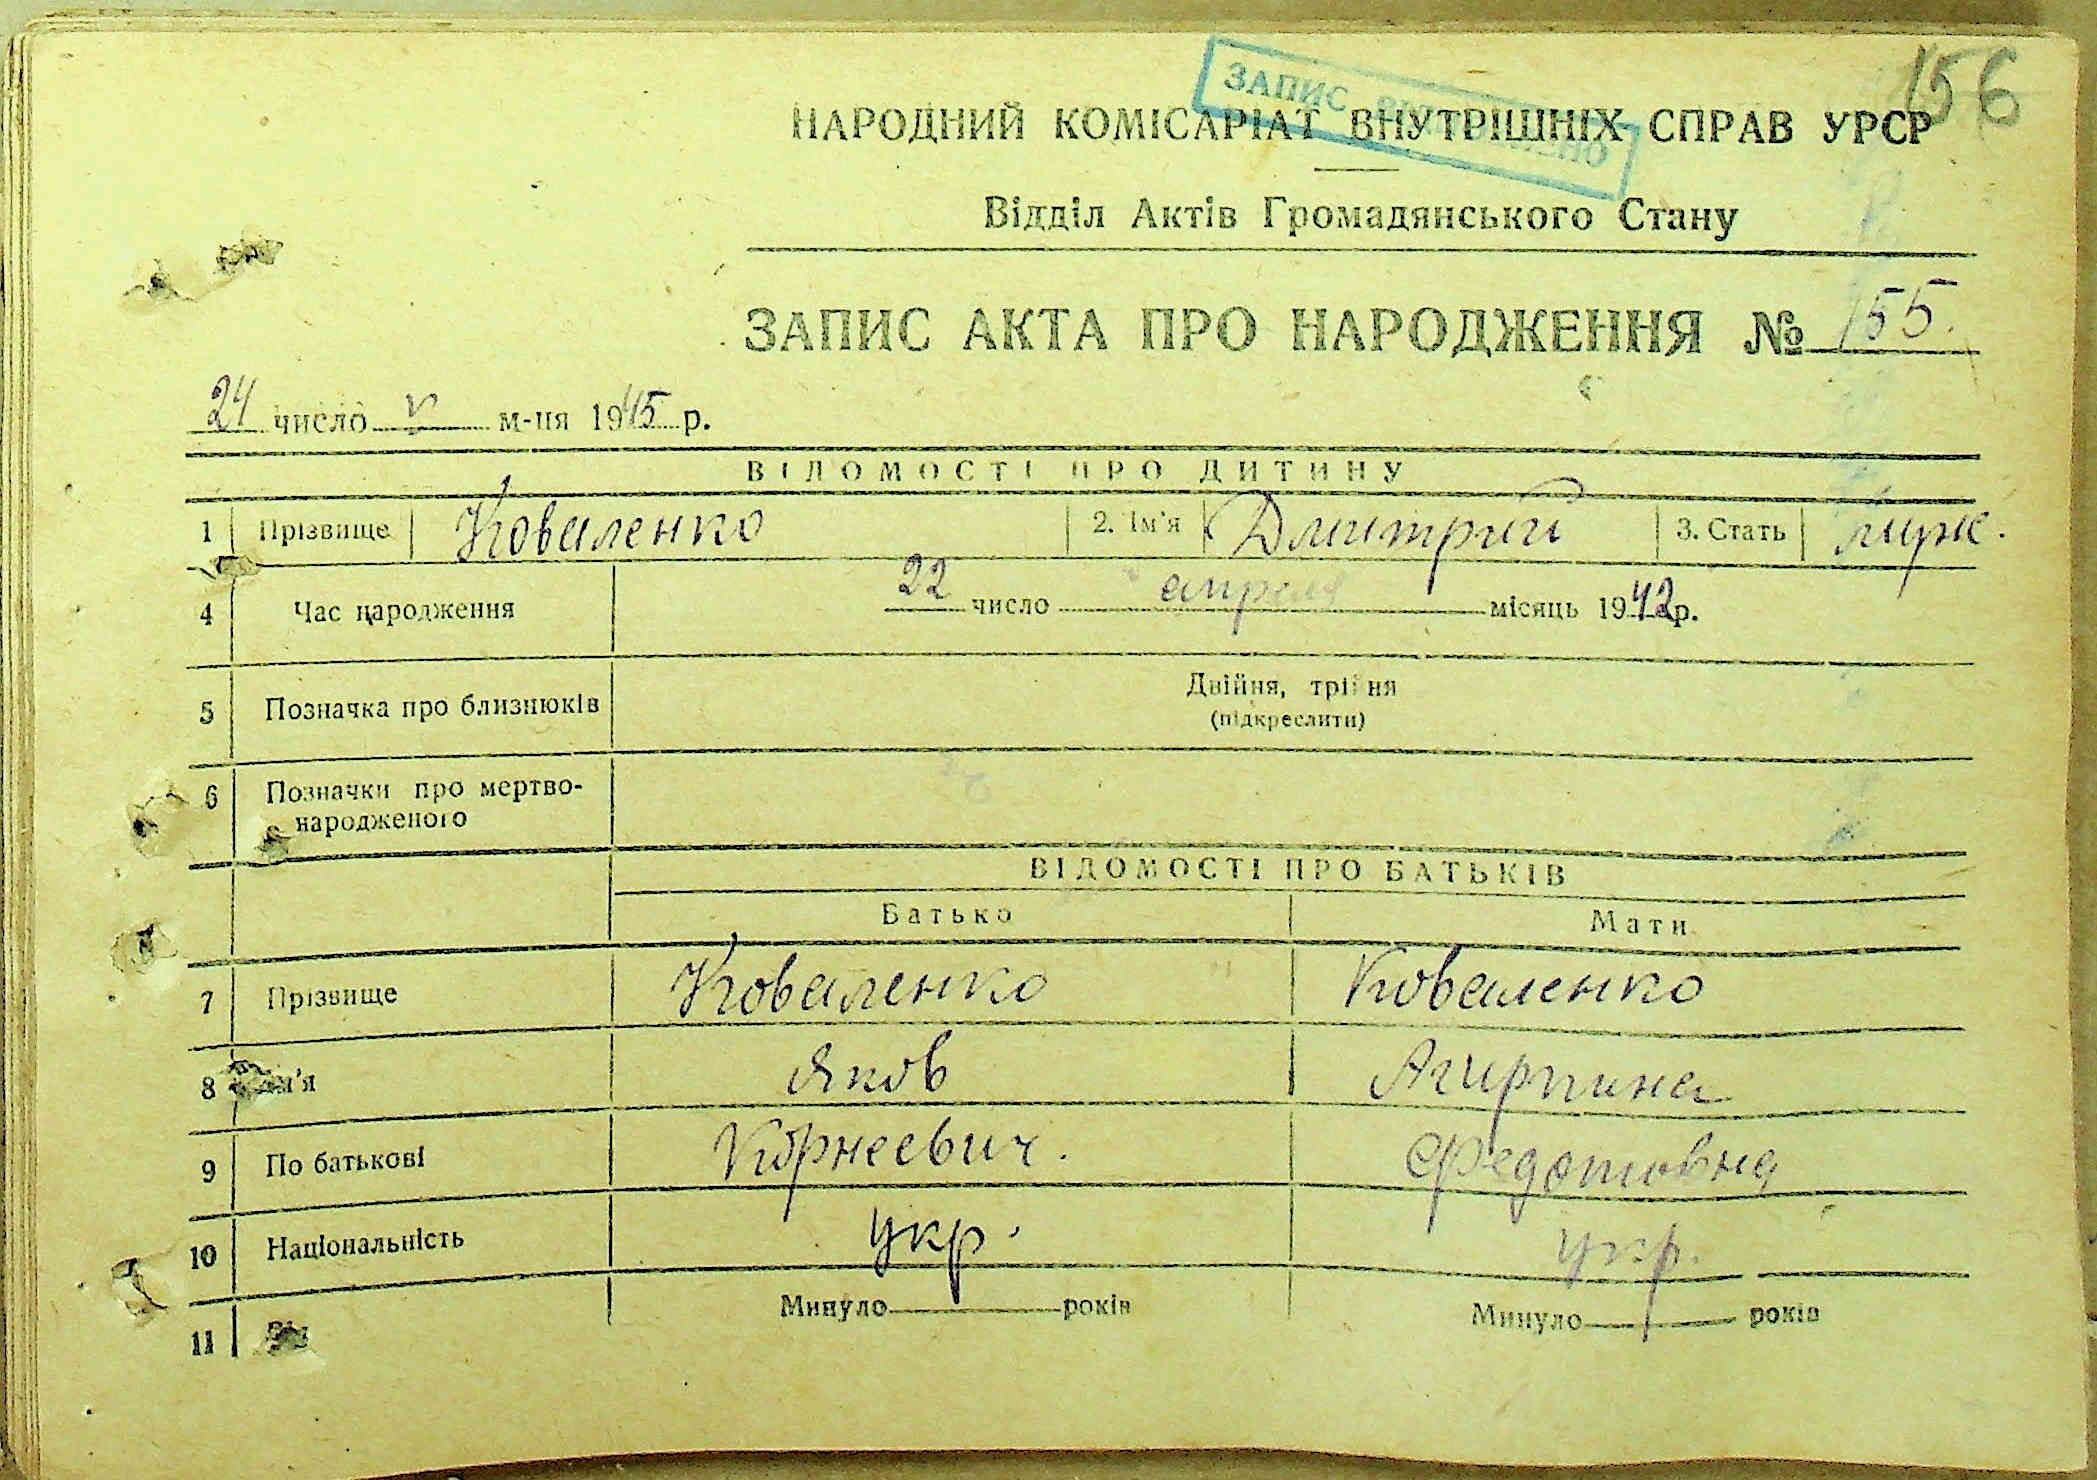 156
ЗАПИС
НАРОДНИЙ КОМІСАРІАТ ВНУТРІШНІХ СПРАВ УРСР
Відділ Актів Громадянського Стану
ЗАПИС АКТА ПРО НАРОДЖЕННЯ № 155.
24 число V м-ця 1945 р.
ВІДОМОСТІ ПРО ДИТИНУ
1 Прізвище Коваленко 2. Ім'я Дмитрий 3. Стать муж.
4 Час народження 22 число апреля місяць 1942 р.
5 Позначка про близнюків Двійня, трійня
(підкреслити)
6 Позначки про мертво-
народженого
ВІДОМОСТІ ПРО БАТЬКІВ
Батько Мати
7 Прізвище Коваленко Коваленко
8 Ім'я Яков Агирпина
9 По батькові Корнеевич. Федотовна
10 Національність укр. укр.
11 Вік Минуло років Минуло років